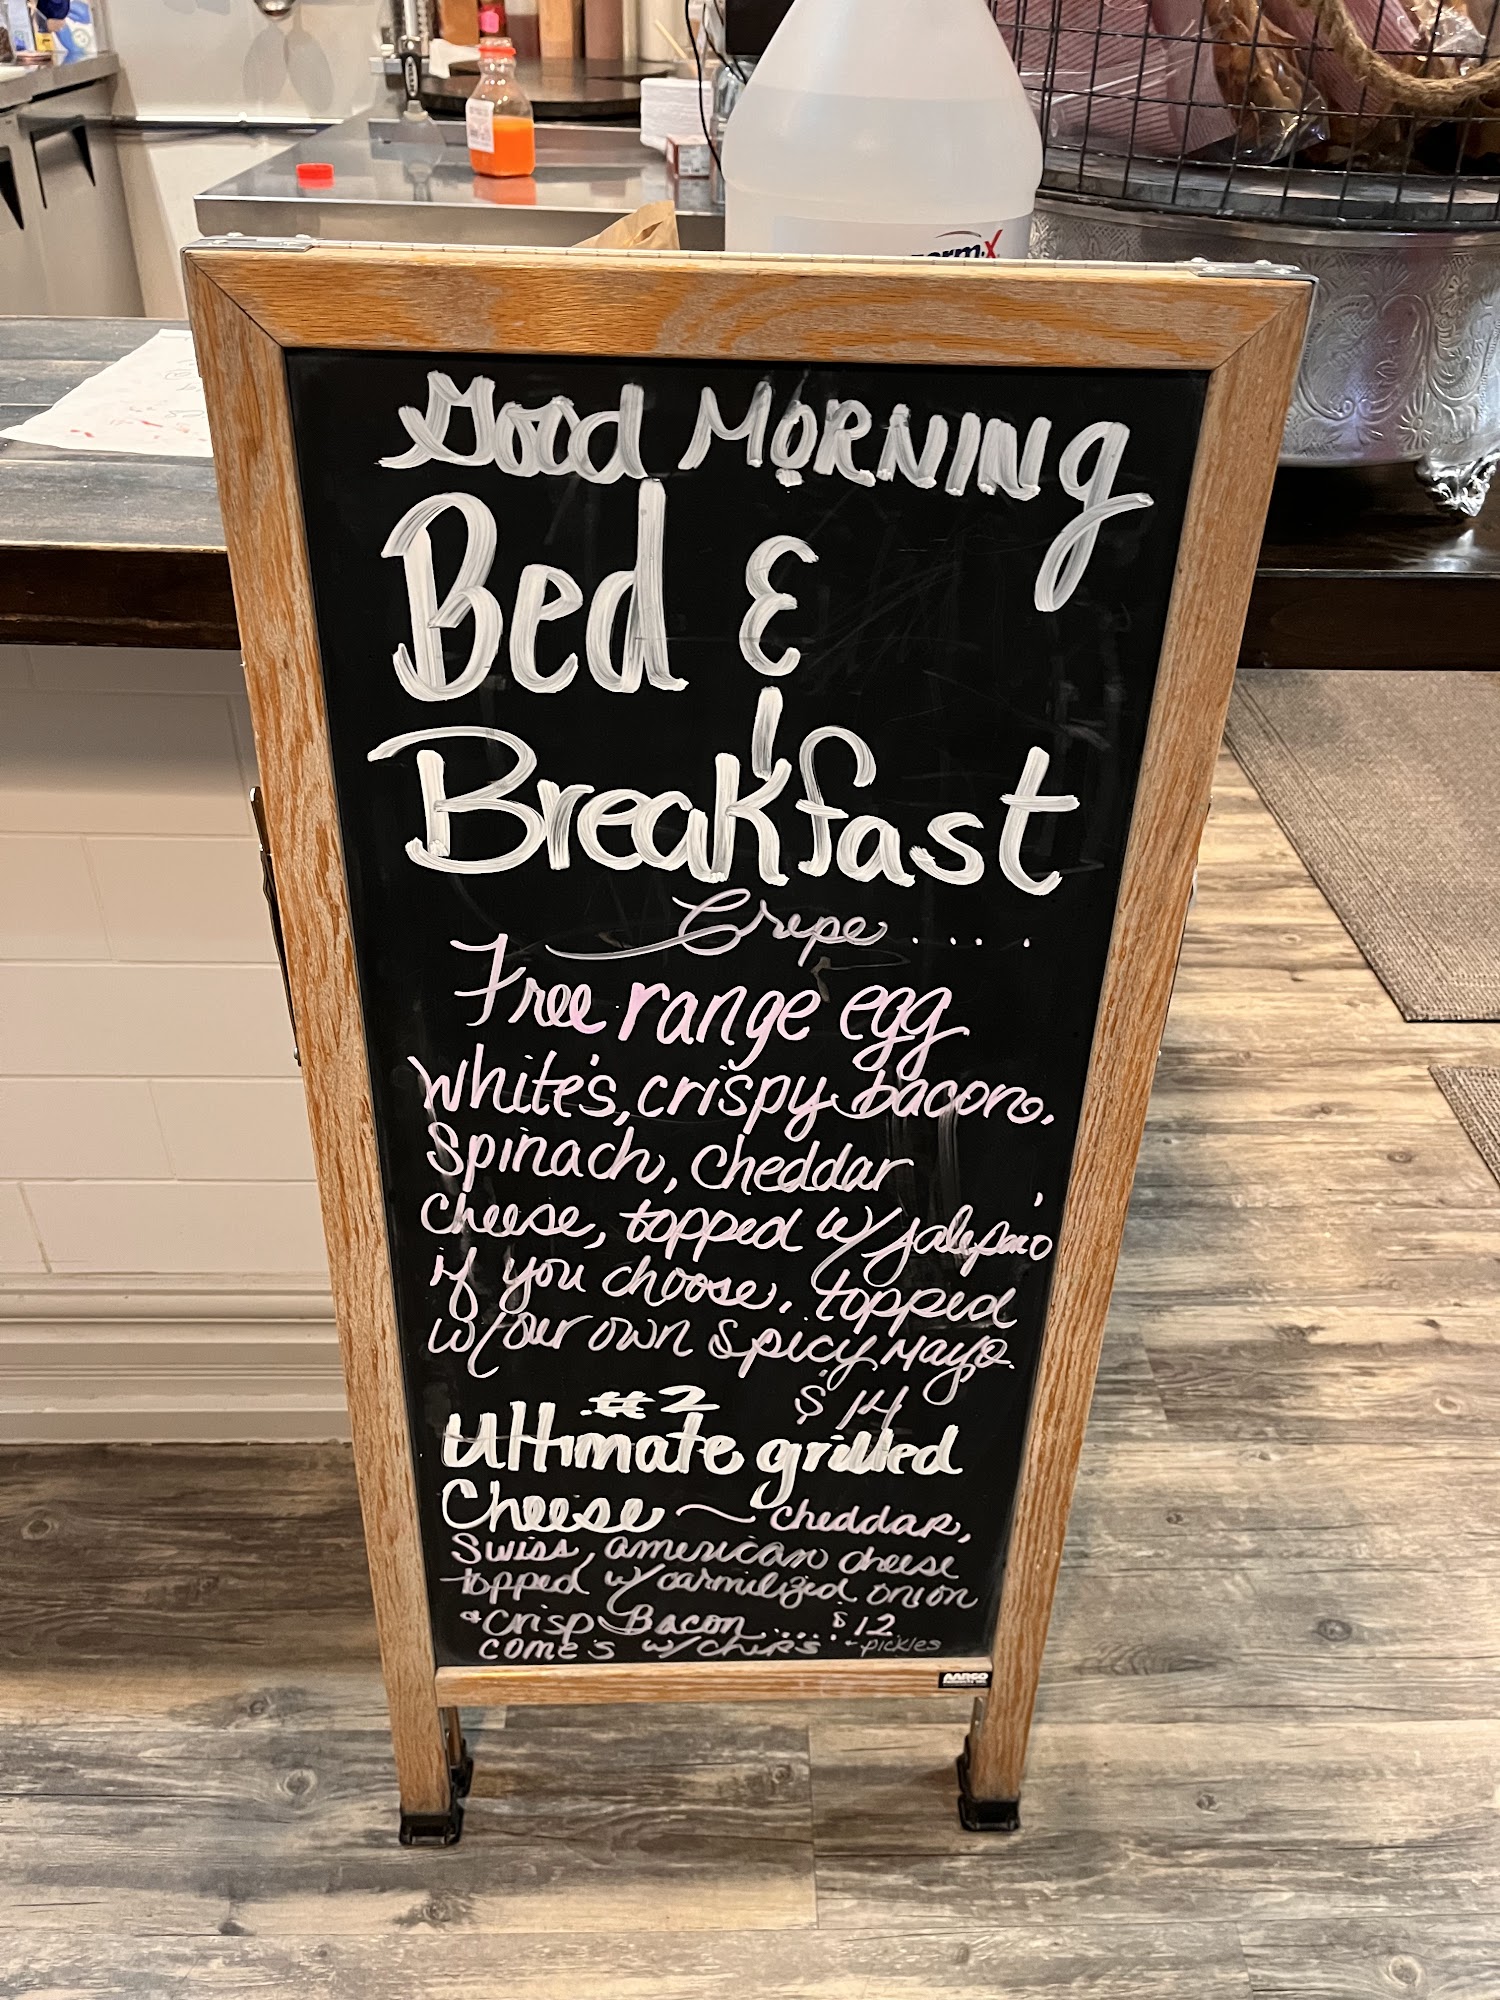 Good MORNING
Bed &
Breakfast
Crepe....
Free range egg
white's, crispy bacon,
Spinach, cheddar
Cheese, topped w/ jalepeño
if you choose, topped
w/ our own spicy Mayo.
#2 $14
Ultimate grilled
Cheese ~ cheddar,
Swiss, american cheese
topped w/ carmilized onion
& crisp Bacon..... $12
come's w/ chips + pickles
AARCO